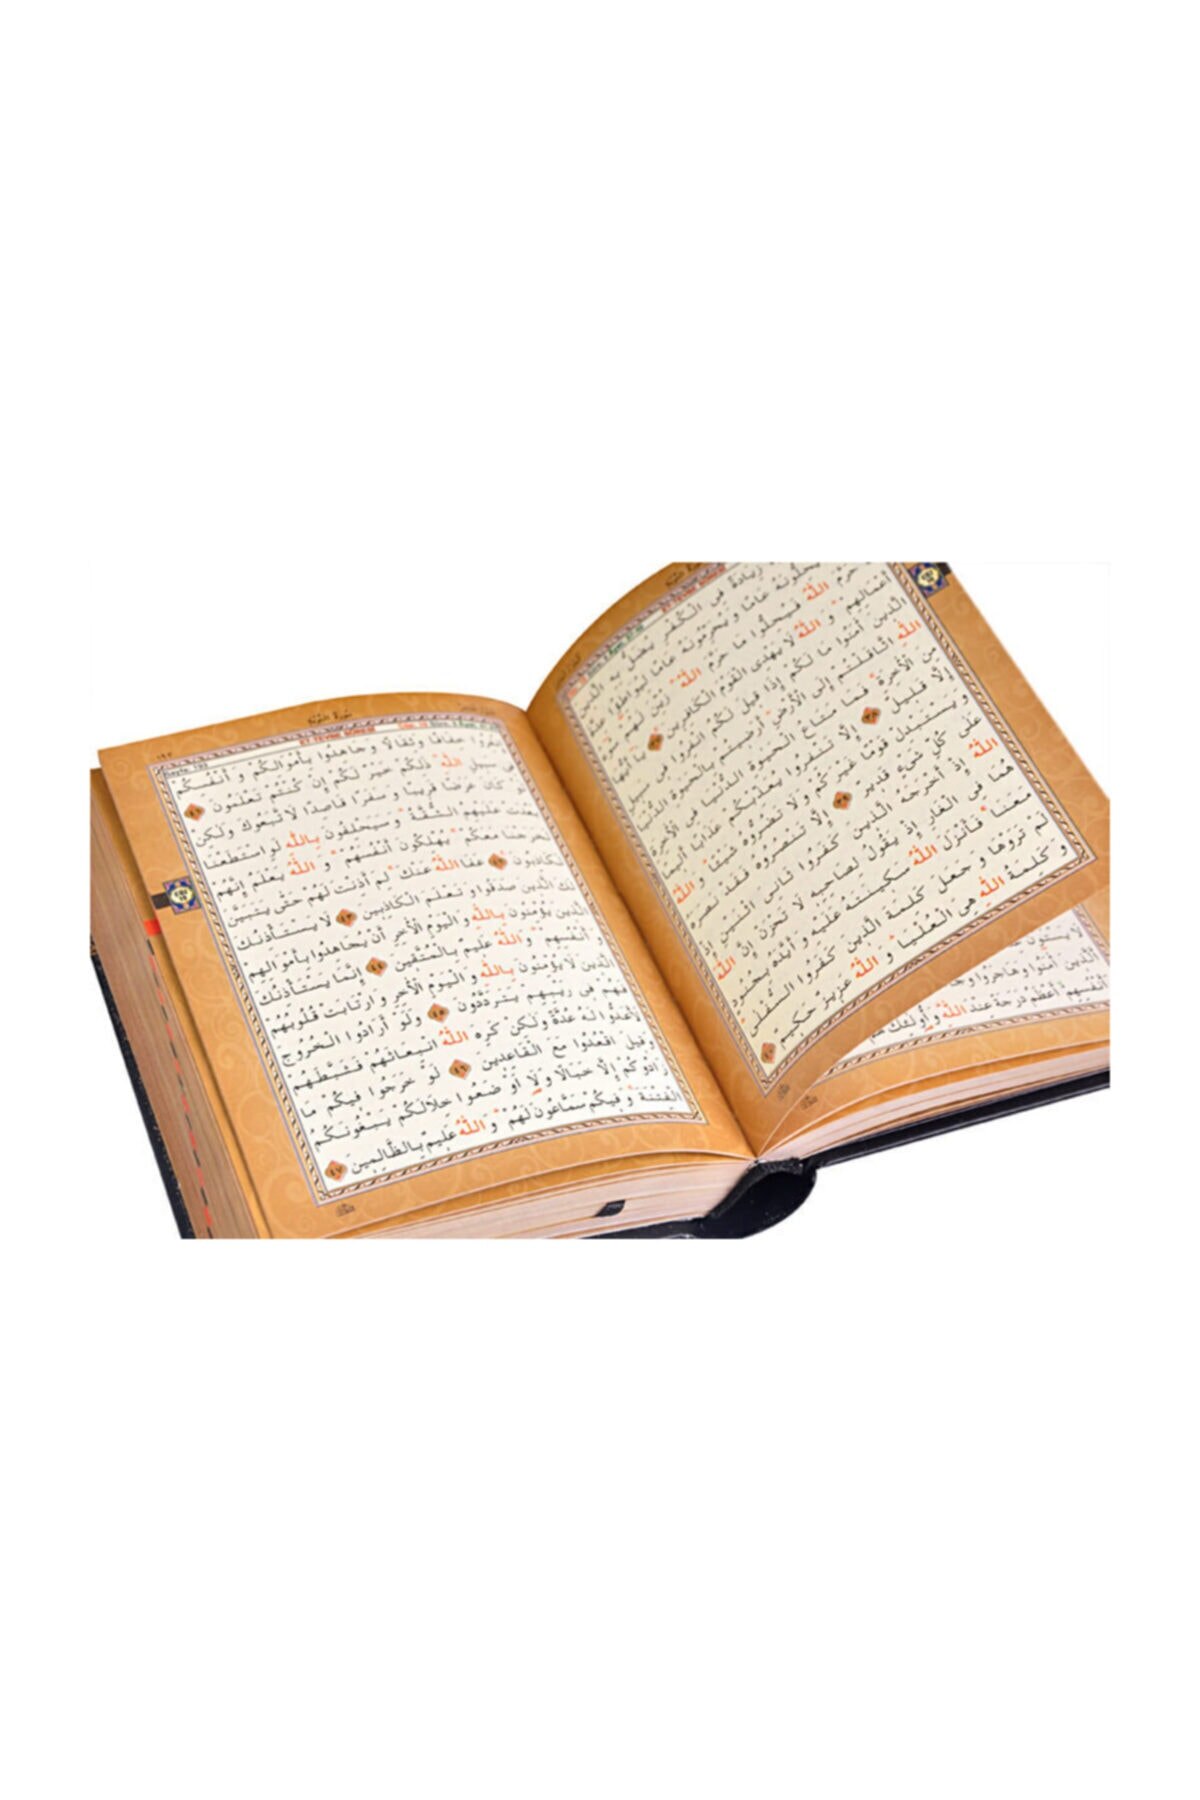 زِيَادَةٌ فِي الْكُفْرِ يُضَلُّ بِهِ
يُحِلُّونَهُ عَامًا وَ يُحَرِّمُونَهُ عَامًا لِيُوَاطِؤُا
حَرَّمَ اللّٰهُ فَيُحِلُّوا مَا حَرَّمَ اللّٰهُ زُيِّنَ لَهُمْ
أَعْمَالِهِمْ وَ اللّٰهُ لَا يَهْدِى الْقَوْمَ الْكَافِرِينَ ٣٧ يَا أَيُّهَا
الَّذِينَ آمَنُوا مَا لَكُمْ إِذَا قِيلَ لَكُمُ انْفِرُوا فِى سَبِيلِ
اللّٰهِ اثَّاقَلْتُمْ إِلَى الْأَرْضِ أَرَضِيتُمْ بِالْحَيٰوةِ الدُّنْيَا
مِنَ الْآخِرَةِ فَمَا مَتَاعُ الْحَيٰوةِ الدُّنْيَا فِى الْآخِرَةِ
إِلَّا قَلِيلٌ ٣٨ إِلَّا تَنْفِرُوا يُعَذِّبْكُمْ عَذَابًا أَلِيمًا
وَ يَسْتَبْدِلْ قَوْمًا غَيْرَكُمْ وَ لَا تَضُرُّوهُ شَيْئًا وَ اللّٰهُ
عَلَى كُلِّ شَىْءٍ قَدِيرٌ ٣٩ إِلَّا تَنْصُرُوهُ فَقَدْ نَصَرَهُ
اللّٰهُ إِذْ أَخْرَجَهُ الَّذِينَ كَفَرُوا ثَانِىَ اثْنَيْنِ إِذْ
هُمَا فِى الْغَارِ إِذْ يَقُولُ لِصَاحِبِهِ لَا تَحْزَنْ إِنَّ اللّٰهَ
مَعَنَا فَأَنْزَلَ اللّٰهُ سَكِينَتَهُ عَلَيْهِ وَ أَيَّدَهُ بِجُنُودٍ
لَمْ تَرَوْهَا وَ جَعَلَ كَلِمَةَ الَّذِينَ كَفَرُوا السُّفْلَى
وَ كَلِمَةُ اللّٰهِ هِىَ الْعُلْيَا وَ اللّٰهُ عَزِيزٌ حَكِيمٌ ٤٠
الَّذِينَ آمَنُوا وَ هَاجَرُوا
أَنْفُسِهِمْ أَعْظَمُ دَرَجَةً عِنْدَ اللّٰهِ وَ أُولٰئِكَ هُمُ
سُورَةُ التَّوْبَةِ
ET-TEVBE SÛRESİ
انْفِرُوا خِفَافًا وَ ثِقَالًا وَ جَاهِدُوا بِأَمْوَالِكُمْ وَ أَنْفُسِكُمْ
فِى سَبِيلِ اللّٰهِ ذٰلِكُمْ خَيْرٌ لَكُمْ إِنْ كُنْتُمْ تَعْلَمُونَ ٤١
كَانَ عَرَضًا قَرِيبًا وَ سَفَرًا قَاصِدًا لَاتَّبَعُوكَ وَ لٰكِنْ
بَعُدَتْ عَلَيْهِمُ الشُّقَّةُ وَ سَيَحْلِفُونَ بِاللّٰهِ لَوِ اسْتَطَعْنَا
لَخَرَجْنَا مَعَكُمْ يُهْلِكُونَ أَنْفُسَهُمْ وَ اللّٰهُ يَعْلَمُ إِنَّهُمْ
لَكَاذِبُونَ ٤٢ عَفَا اللّٰهُ عَنْكَ لِمَ أَذِنْتَ لَهُمْ حَتَّى يَتَبَيَّنَ
لَكَ الَّذِينَ صَدَقُوا وَ تَعْلَمَ الْكَاذِبِينَ ٤٣ لَا يَسْتَأْذِنُكَ
الَّذِينَ يُؤْمِنُونَ بِاللّٰهِ وَ الْيَوْمِ الْآخِرِ أَنْ يُجَاهِدُوا بِأَمْوَالِهِمْ
وَ أَنْفُسِهِمْ وَ اللّٰهُ عَلِيمٌ بِالْمُتَّقِينَ ٤٤ إِنَّمَا يَسْتَأْذِنُكَ
الَّذِينَ لَا يُؤْمِنُونَ بِاللّٰهِ وَ الْيَوْمِ الْآخِرِ وَ ارْتَابَتْ قُلُوبُهُمْ
فَهُمْ فِى رَيْبِهِمْ يَتَرَدَّدُونَ ٤٥ وَ لَوْ أَرَادُوا الْخُرُوجَ
لَأَعَدُّوا لَهُ عُدَّةً وَ لٰكِنْ كَرِهَ اللّٰهُ انْبِعَاثَهُمْ فَثَبَّطَهُمْ
وَ قِيلَ اقْعُدُوا مَعَ الْقَاعِدِينَ ٤٦ لَوْ خَرَجُوا فِيكُمْ مَا
زَادُوكُمْ إِلَّا خَبَالًا وَ لَأَوْضَعُوا خِلَالَكُمْ يَبْغُونَكُمُ
الْفِتْنَةَ وَ فِيكُمْ سَمَّاعُونَ لَهُمْ وَ اللّٰهُ عَلِيمٌ بِالظَّالِمِينَ ٤٧